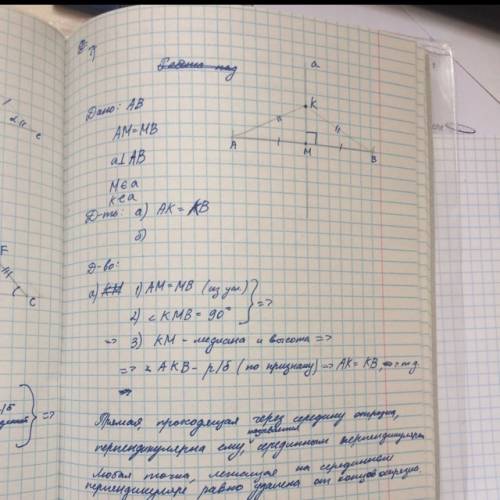 a
K
A
M
B
Дано: AB
AM=MB
a⊥AB
M∈a
K∈a
Д-ть: а) AK = KB
б)
Д-во:
а) 1) AM=MB (из усл.)
2) <KMB = 90° } =>
=> 3) KM - медиана и высота =>
=> AKB - р/б (по признаку) => AK = KB, =>
Прямая, проходящая через середину отрезка,
перпендикулярна ему, называется серединным перпендикуляром
Любая точка, лежащая на серединном
перпендикуляре равно удалена от концов отрезка.
F
c
c
р/б
=>